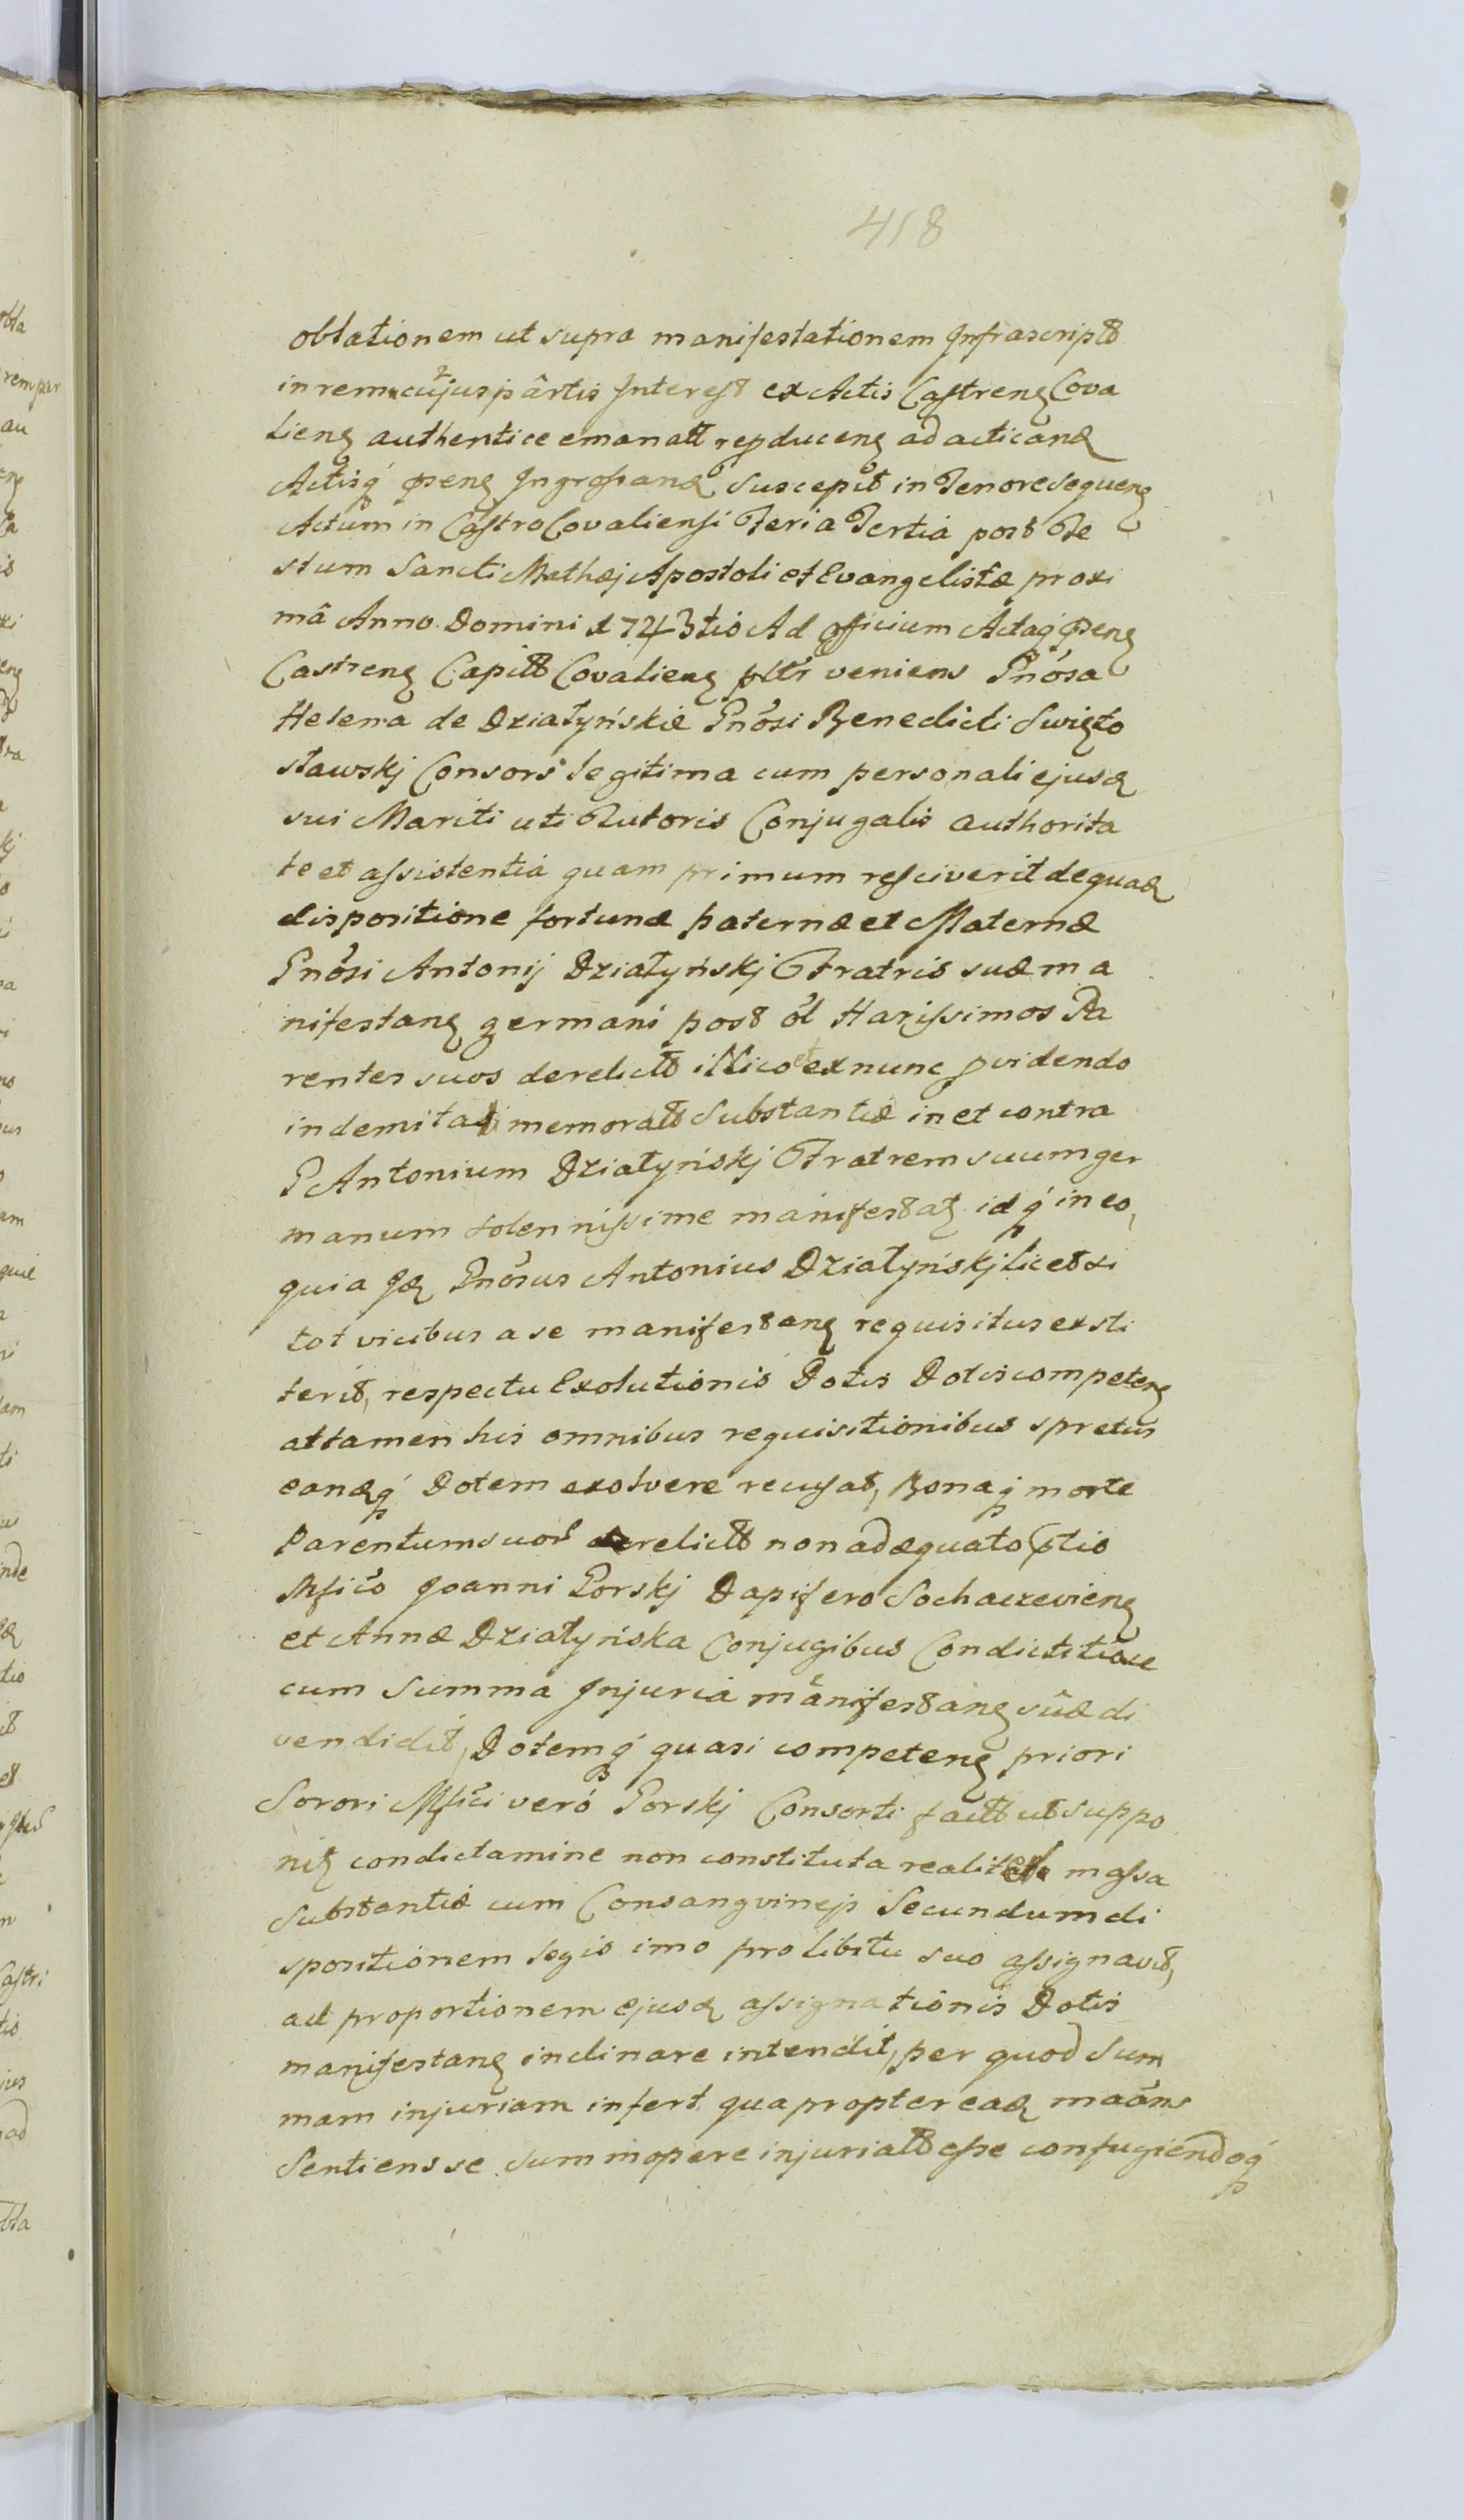 418
oblationem ut supra manifestationem Infrascriptt
in rem cujus partis Interest ex Actis Castren Cova
lien authentice emanatt reproducen ad acticand
Actisq pren Ingrossand suscepit in Tenore Sequen
Actum in Castro Covaliensi Feria Tertia post Fe
stum Sancti Mathæj Apostoli et Evangelistæ proxi
mâ Anno Domini 1743tio Ad Officium Actaq Pren
Castren Capitt Covalien pltr veniens Gnosa
Helena de Działyńskie Gnosi Benedicti Swięto
sławskj Consors legitima cum personali ejusd
sui Mariti uti Tutoris Conjugalis authorita
te et assistentiá quam primum resciverit de quad
dispositione fortunæ paternæ et Maternæ
Gnosi Antonij Działyńskj Fratris suæ ma
nifestang germani post ol Harissimos Pa
rentes suos derelictt illico et ex nunc pvidendo
indemitati memoratt Substantiæ in et contra
G Antonium Działyńskj Fratrem suum ger
manum solennissime manifestat idq in eo,
quia Id Gnosus Antonius Działyńskj licet si
tot vicibus a se manifestang requisitus exsti
terit, respectu Exolutionis Dotis Dotis competeng
attamen his omnibus requisitionibus spretus
eandq Dotem exolvere recusat, Bonaq morte
Parentum suor derelictt non adæquato ptio
Mfico Joanni Gorskj Dapifero Sochaczevieng
et Annæ Działyńska Conjugibus Condictitiove
cum Summa Injuriá manifestang suæ di
vendidit, Dotemq quasi competeng priori
Sorori Mfici veró Gorskj Consorti factt ut suppo
nit condictamine non constituta realiter massa
Substantiæ cum Consangvinejs Secundum di
spositionem legis imo pro libitu suo assignavit,
ad proportionem ejusd assignationis Dotis
manifestang inclinare intendit, per quod Sum
mam injuriam infert qua propter ead maons
Sentiens se summopere injuriatt esse confugiendoq